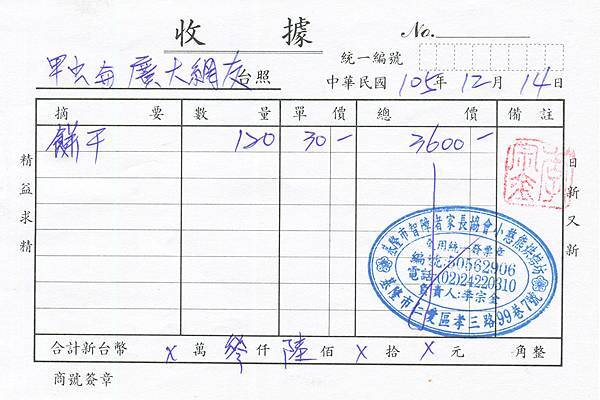 收據
No.
統一編號
甲虫每廣大網友台照
中華民國105年12月14日
摘要 數量 單價 總價 備註
餅干 120 30- 3600-
精益求精
日新又新
基隆市智障者家長協會小憨熊烘焙坊
免用統一發票章
編號:50562906
電話:(02)24220310
負責人:李宗金
基隆市仁愛區孝三路99巷7號
合計新台幣 x萬參仟陸佰x拾x元 角整
商號簽章